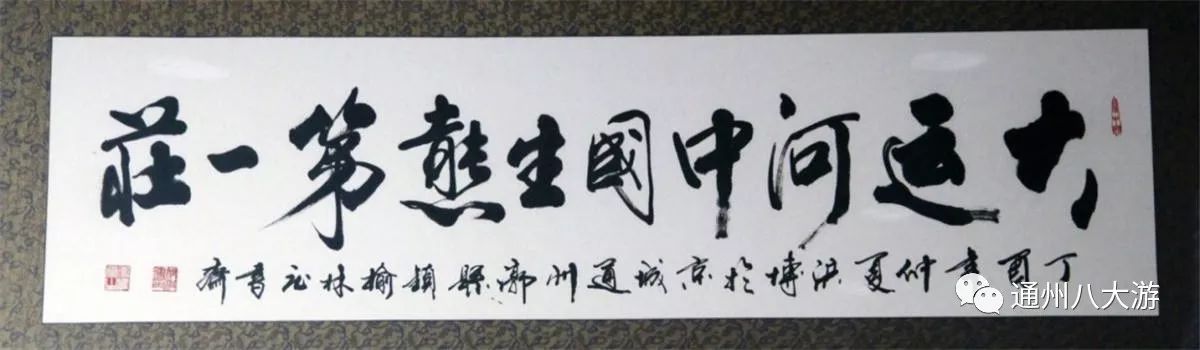 大运河中國生態第一莊
丁酉年仲夏洪博於京城通州漷縣鎮榆林庄書齋
通州八大游